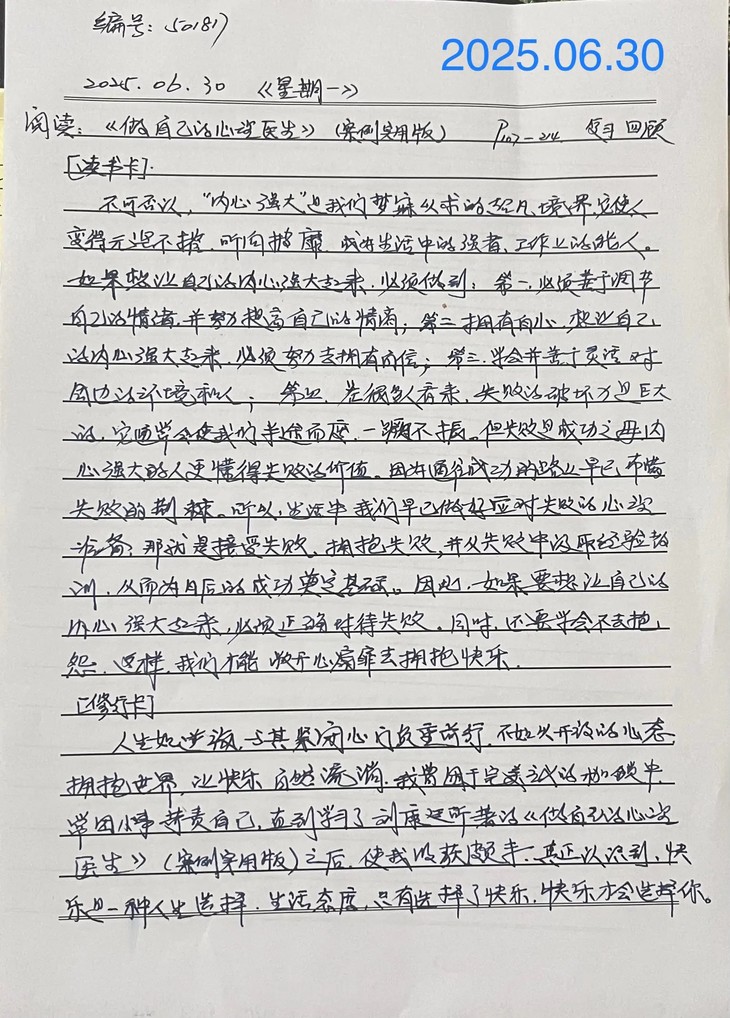 编号: 50187
2025.06.30
2025.06.30 《星期一》
阅读:《做自己的心理医生》(案例实用版) 复习回顾
[读书卡].
不可否认,“内心强大”是我们梦寐以求的超凡境界,它使人
变得无坚不摧,所向披靡,成为生活中的强者、工作上的能人。
如果想让自己的内心强大起来,必须做到:第一,必须善于调节
自己的情绪,并努力提高自己的情商;第二拥有自心,想让自己
的内心强大起来,必须努力去拥有自信;第三,学会并善于灵活对
周边的环境和人;第四,在很多人看来,失败的破坏力是巨大
的,它通常会使我们半途而废,一蹶不振。但失败是成功之母,内
心强大的人更懂得失败的价值。因为通往成功的路上早已布满
失败的荆棘。所以,生活中我们早已做好应对失败的心理
准备:那就是接受失败、拥抱失败,并从失败中汲取经验教
训,从而为日后的成功奠定基础。因此,如果要想让自己的
内心强大起来,必须正确对待失败。同时,还要学会不去抱
怨,这样,我们才能敞开心扉去拥抱快乐.
[修行卡]
人生如逆旅,与其紧闭心门负重前行,不如以开放的心态
拥抱世界,让快乐自然流淌.我曾困于完美主义的枷锁中,
常因小事苛责自己,直到学习了刘康近所著的《做自己的心理
医生》(案例实用版)之后,使我收获颇丰,真正认识到,快
乐是一种人生选择、生活态度,只有选择了快乐,快乐才会选择你。